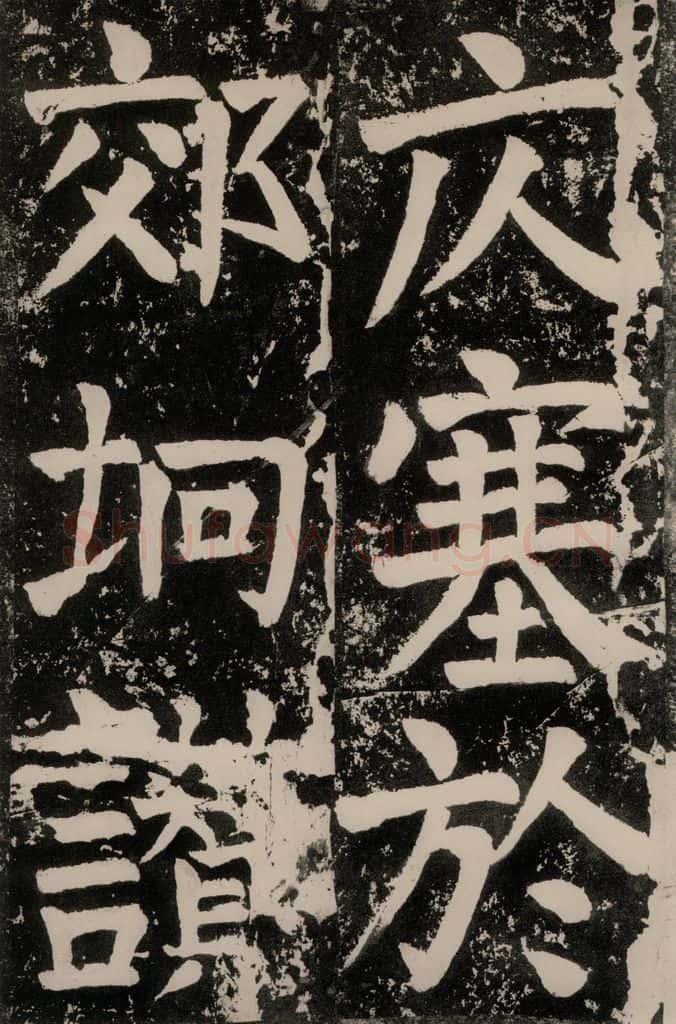 仄塞於
郊坰讃
Shufawang.CN